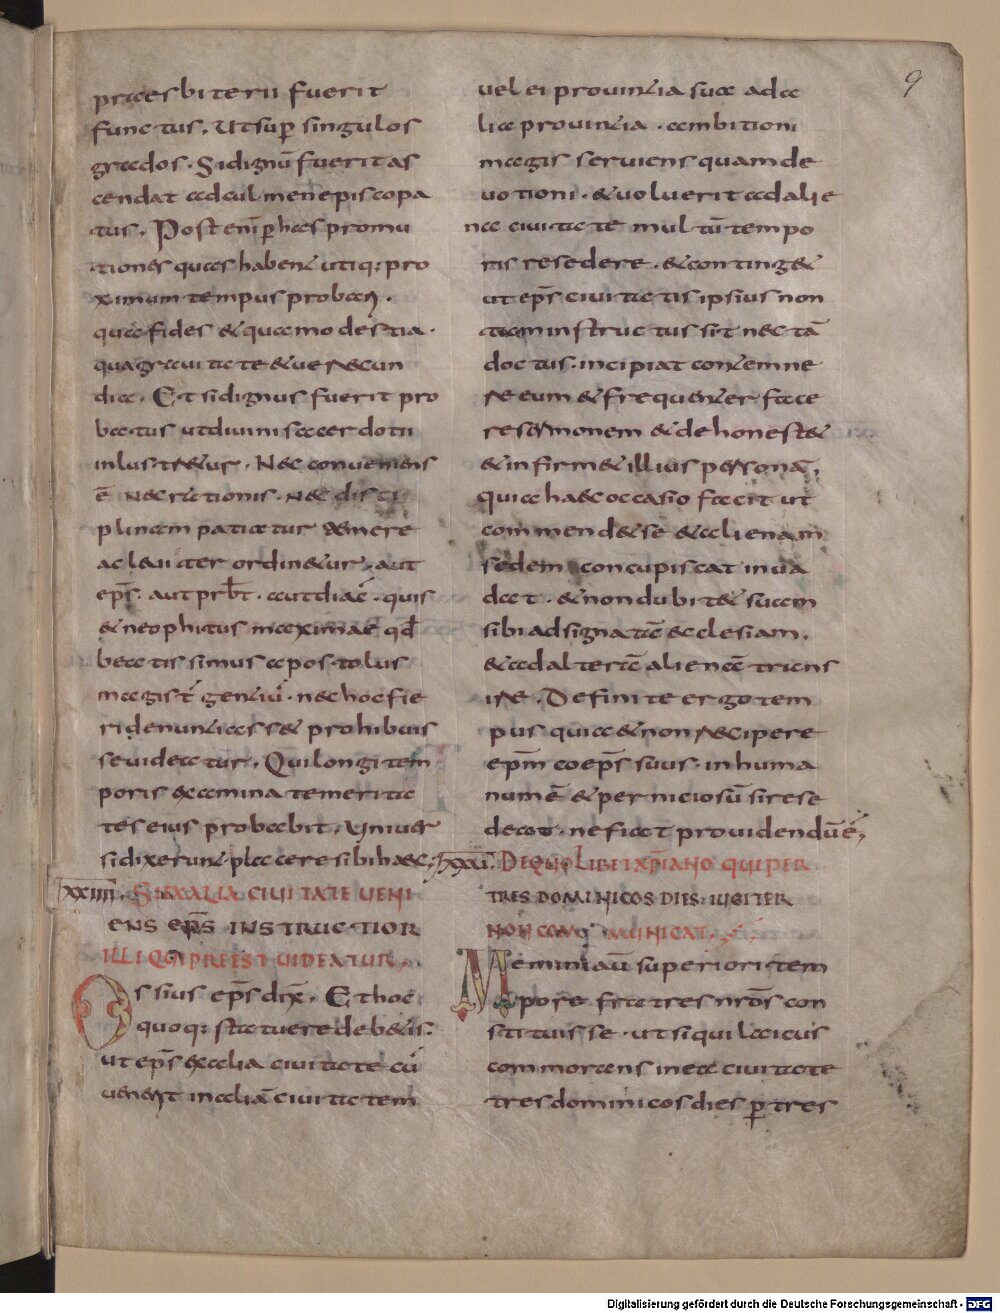 praesbiterii fuerit
functus. Ut sup̄ singulos
gradus. Si dignū fuerit as
cendat ad culmen episcopa
tus. Post enī p̄ has promu
tiones quas habent utiq; pro
ximum tempus probari.
quae fides & quae modestia.
qua gravitate & verecun
dia. Et si dignus fuerit pro
batus ut divini sacerdotii
inlustretur. Nec conveniens
ē nec rationis. nec disci
plinam patiatur temere
ac leviter ordinetur. aut
ep̄s. aut prb̄t. aut diac̄. quis
& neophitus maxime qđ
beatissimus apostolus
magist̄ gentiū. nec hoc fie
ri denuntiasse & prohibuis
se videatur. Qui longi tem
poris examina temerita
tes eius probabit. Univer
si dixerunt placere sibi haec.
XXIIII. Si ex alia civitate veni
ens ep̄s instructior
illi qui preest videatur.
Ossius ep̄s dix̄. Et hoc
quoq; statuere debetis.
ut ep̄s ex alia civitate cū
venerit in aliā civitatem
9
vel ei provintia sua ad a
lia provintia. ambitioni
magis serviens quam de
votioni. & voluerit ad alie
na civitate multū tempo
ris resedere. & conting&
ut ep̄s civitatis ipsius non
tam instructus sit nec tā
doctus. incipiat contemne
re eum & frequenter face
re sermonem & dehonest&
& infirm& illius personā.
quia haec occasio facit ut
commend& se & alienam
sedem concupiscat invá
dat. & non dubit& suam
sibi adsignatā ecclesiam.
& ad alterā alienā trans
ire. Definite ergo tem
pus quia & non recipere
ep̄m coep̄s suus inhuma
num ē & perniciosū si rese
deat. ne fiat providendū ē.
XXXI. De quolibet xp̄iano qui per
tres dominicos dies iugiter
non communicat.
Meminiāū superiori tem
pore fratres nrōs con
stituisse. ut si qui laicus
commorans in ea civitate
tres dominicos dies p̄ tres
Digitalisierung gefördert durch die Deutsche Forschungsgemeinschaft - DFG